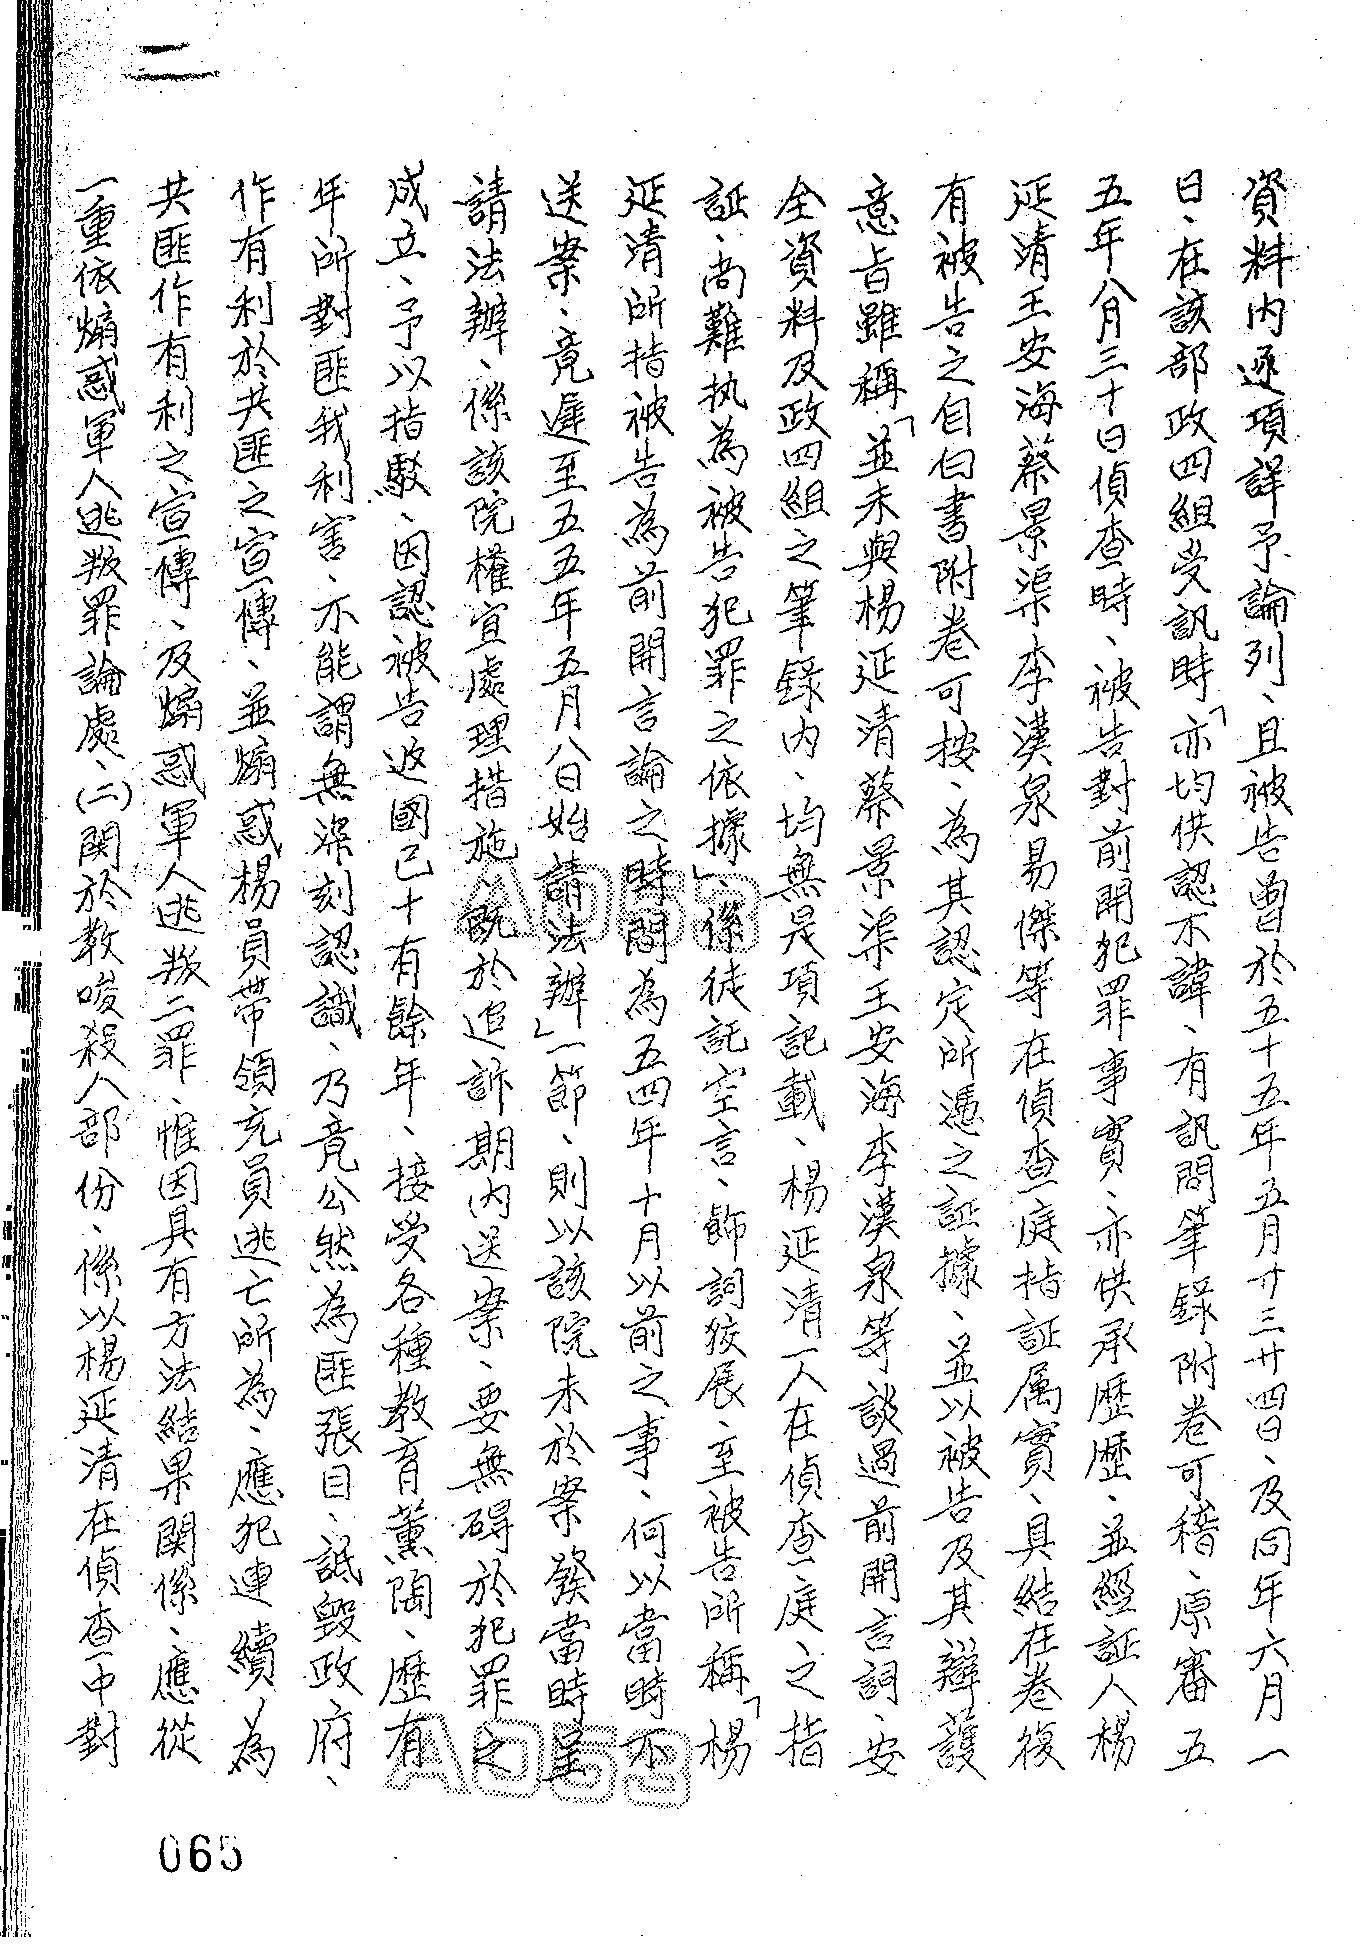 二
資料內逐項詳予論列、且被告曾於五十五年五月廿三廿四日、及同年六月一
日、在該部政四組受訊時「亦均供認不諱、有訊問筆錄附卷可稽、原審五
五年八月三十日偵查時、被告對前開犯罪事實、亦供承歷歷、並經証人楊
延清王安海蔡景渠李漢泉易傑等在偵查庭指証属實、具結在卷復
有被告之自白書附卷可按、為其認定所憑之証據、並以被告及其辯護
意旨雖稱「並未與楊延清蔡景渠王安海李漢泉等談過前開言詞、安
全資料及政四組之筆錄內、均無是項記載、楊延清一人在偵查庭之指
証、尚難执為被告犯罪之依據」係徒託空言、飾詞狡展、至被告所稱「楊
延清所指被告為前開言論之時間為五四年十月以前之事、何以當時不
送案、竟遲至五五年五月八日始請法辦」一節、則以該院未於案發當時呈
請法辦、係該院權宜處理措施、既於追訴期內送案、要無碍於犯罪之
成立、予以指駁、因認被告返國已十有餘年、接受各種教育薰陶、歷有
年所對匪我利害、亦能謂無深刻認識、乃竟公然為匪張目、詆毀政府、
作有利於共匪之宣傳、並煽惑楊員帶領充員逃亡所為、應犯連續為
共匪作有利之宣傳、及煽惑軍人逃叛二罪、惟因具有方法結果関係、應從
一重依煽惑軍人逃叛罪論處、(二)関於教唆殺人部份、係以楊延清在偵查中對
A053
A053
065